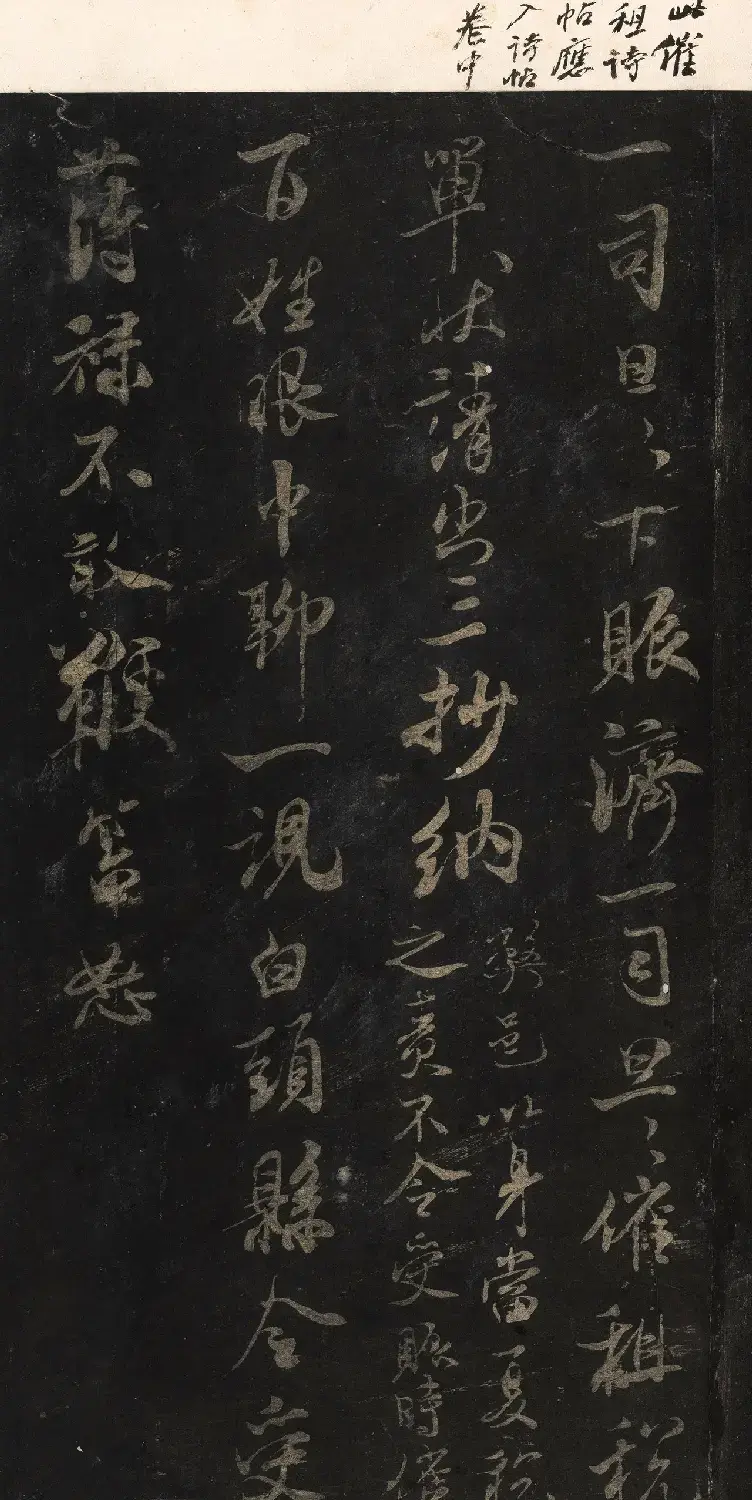 此催
租诗
帖應
入诗帖
卷中
一司旦旦下賑濟一司旦旦催租税
單狀請出三抄納
弊邑以身當夏税
之責不令受賑時催
百姓眼中聊一視白頭縣令受
薄禄不敢鞭笞怒